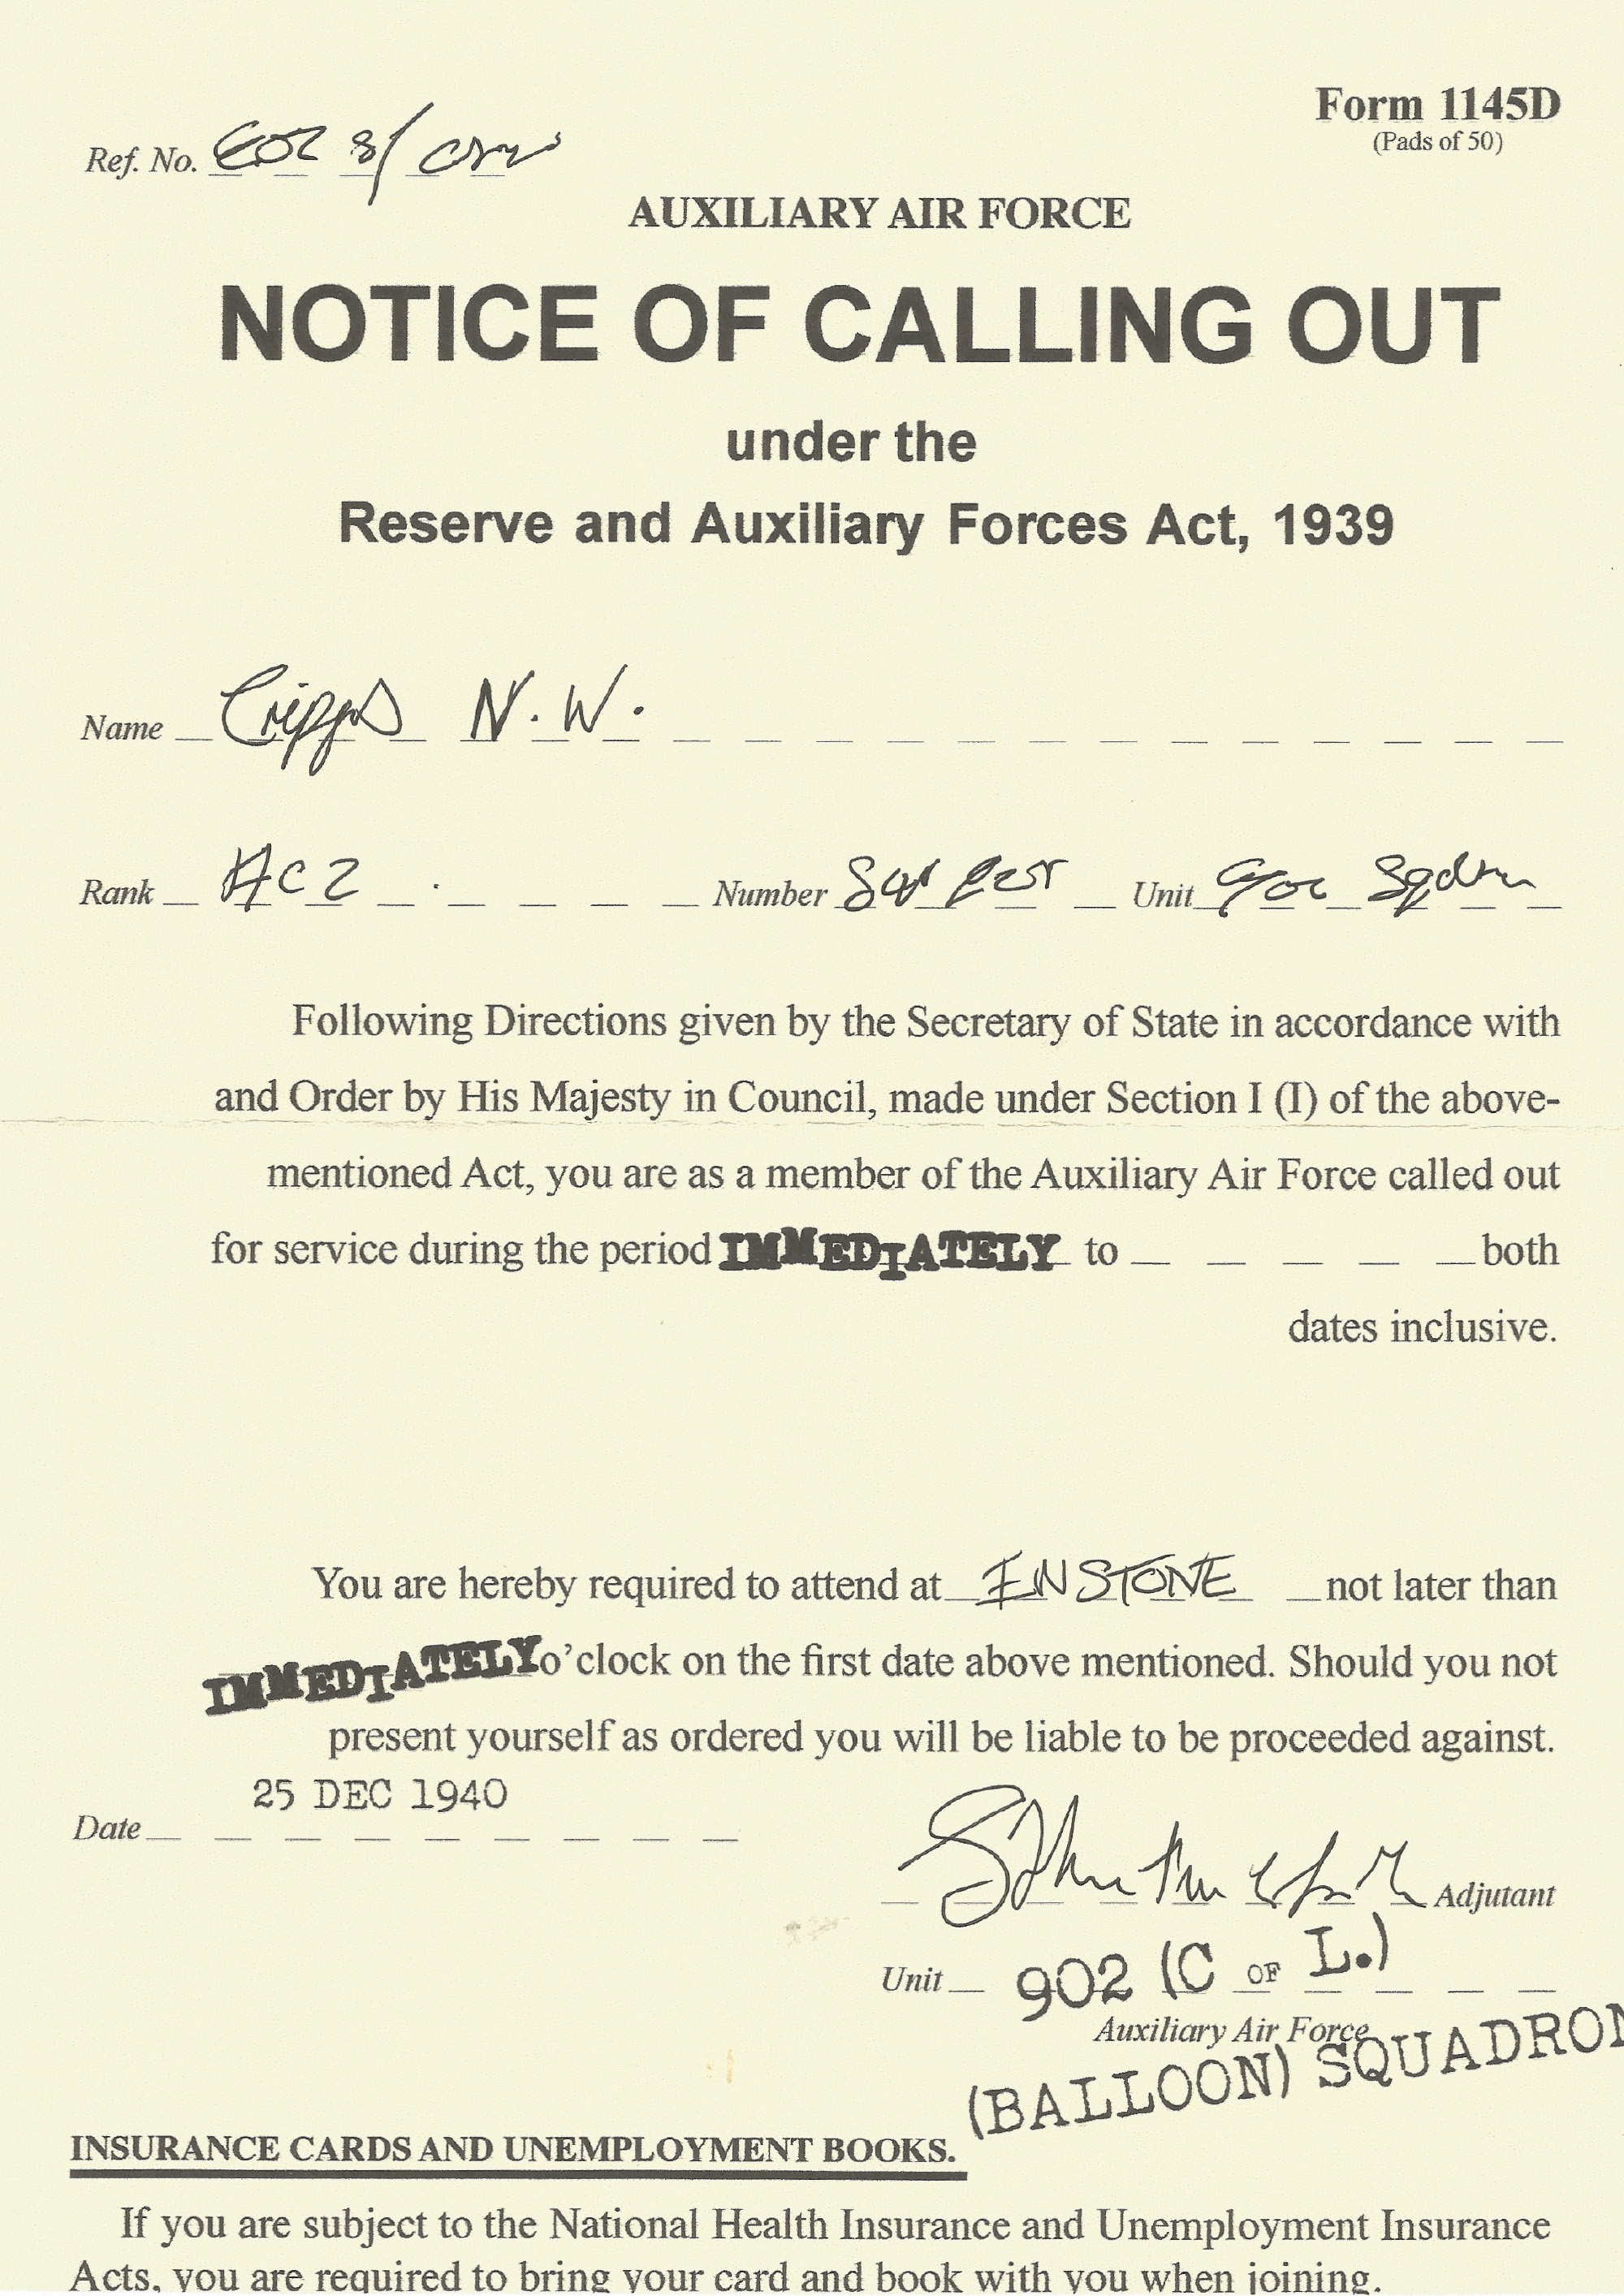 Form 1145D
(Pads of 50)
Ref. No.
AUXILIARY AIR FORCE
NOTICE OF CALLING OUT
under the
Reserve and Auxiliary Forces Act, 1939
Name Cripps N.W.
Rank AC2 Number Unit Sqdrn
Following Directions given by the Secretary of State in accordance with
and Order by His Majesty in Council, made under Section I (I) of the above-
mentioned Act, you are as a member of the Auxiliary Air Force called out
for service during the period IMMEDIATELY to both
dates inclusive.
You are hereby required to attend at ENSTONE not later than
IMMEDIATELY o'clock on the first date above mentioned. Should you not
present yourself as ordered you will be liable to be proceeded against.
25 DEC 1940
Date
Adjutant
Unit 902 (C OF L.)
Auxiliary Air Force
(BALLOON) SQUADRON
INSURANCE CARDS AND UNEMPLOYMENT BOOKS.
If you are subject to the National Health Insurance and Unemployment Insurance
Acts, you are required to bring your card and book with you when joining.